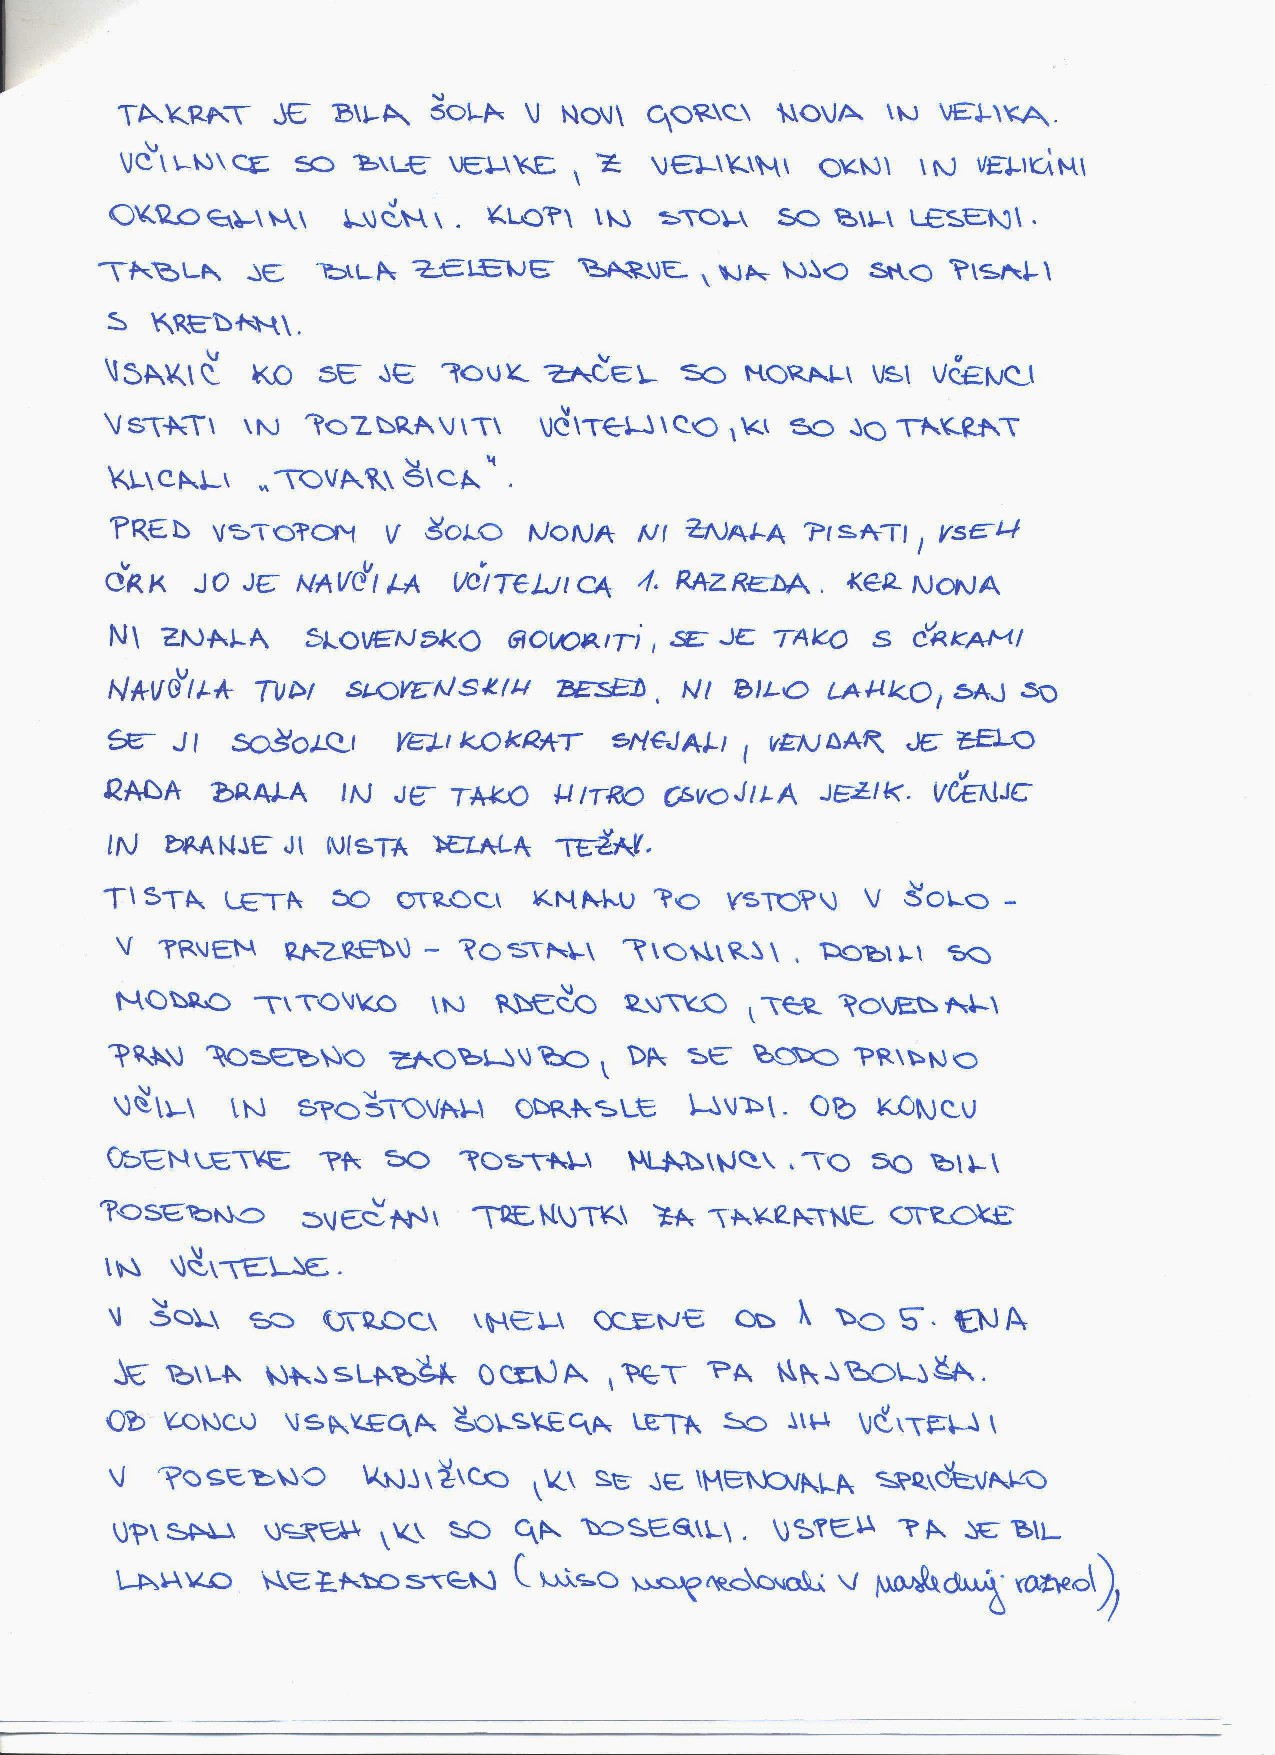 TAKRAT JE BILA ŠOLA V NOVI GORICI NOVA IN VELIKA.
UČILNICE SO BILE VELIKE, Z VELIKIMI OKNI IN VELIKIMI
OKROGLIMI LUČMI. KLOPI IN STOLI SO BILI LESENI.
TABLA JE BILA ZELENE BARVE, NA NJO SMO PISALI
S KREDAMI.
VSAKIČ KO SE JE POUK ZAČEL SO MORALI VSI UČENCI
VSTATI IN POZDRAVITI UČITELJICO, KI SO JO TAKRAT
KLICALI „TOVARIŠICA".
PRED VSTOPOM V ŠOLO NONA NI ZNALA PISATI, VSEH
ČRK JO JE NAVČILA UČITELJICA 1. RAZREDA. KER NONA
NI ZNALA SLOVENSKO GOVORITI, SE JE TAKO S ČRKAMI
NAVČILA TUDI SLOVENSKIH BESED. NI BILO LAHKO, SAJ SO
SE JI SOŠOLCI VELIKOKRAT SMEJALI, VENDAR JE ZELO
RADA BRALA IN JE TAKO HITRO OSVOJILA JEZIK. UČENJE
IN BRANJE JI NISTA DELALA TEŽAV.
TISTA LETA SO OTROCI KMALU PO VSTOPU V ŠOLO -
V PRVEM RAZREDU - POSTALI PIONIRJI. DOBILI SO
MODRO TITOVKO IN RDEČO RUTKO, TER POVEDALI
PRAV POSEBNO ZAOBLJUBO, DA SE BODO PRIDNO
UČILI IN SPOŠTOVALI ODRASLE LJUDI. OB KONCU
OSEMLETKE PA SO POSTALI MLADINCI. TO SO BILI
POSEBNO SVEČANI TRENUTKI ZA TAKRATNE OTROKE
IN UČITELJE.
V ŠOLI SO OTROCI IMELI OCENE OD 1 DO 5. ENA
JE BILA NAJSLABŠA OCENA, PET PA NAJBOLJŠA.
OB KONCU VSAKEGA ŠOLSKEGA LETA SO JIH UČITELJI
V POSEBNO KNJIŽICO, KI SE JE IMENOVALA SPRIČEVALO
UPISALI USPEH, KI SO GA DOSEGILI. USPEH PA JE BIL
LAHKO NEZADOSTEN (niso napredovali v naslednji razred),